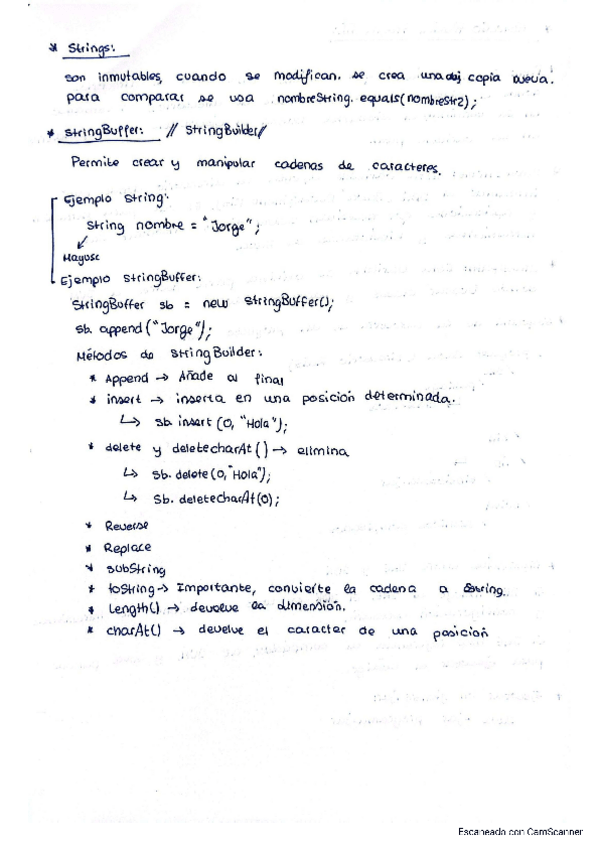 * Strings:
son inmutables, cuando se modifican. se crea una copia nueva.
para comparar se usa nombreString.equals(nombreStr2);
* StringBuffer: // StringBuilder//
Permite crear y manipular cadenas de caracteres.
Ejemplo String:
String nombre = "Jorge";
Mayusc
Ejemplo StringBuffer:
StringBuffer sb = new StringBuffer();
sb.append("Jorge");
Métodos de StringBuilder:
* Append → Añade al final
* insert → inserta en una posición determinada.
↳ sb.insert(0, "Hola");
* delete y deletecharAt() → elimina
↳ sb.delete(0,"Hola");
↳ Sb.deletecharAt(0);
* Reverse
* Replace
* subString
* toString → Importante, convierte la cadena a String.
* Length() → devuelve la dimensión.
* charAt() → devuelve el caracter de una posición
Escaneado con CamScanner